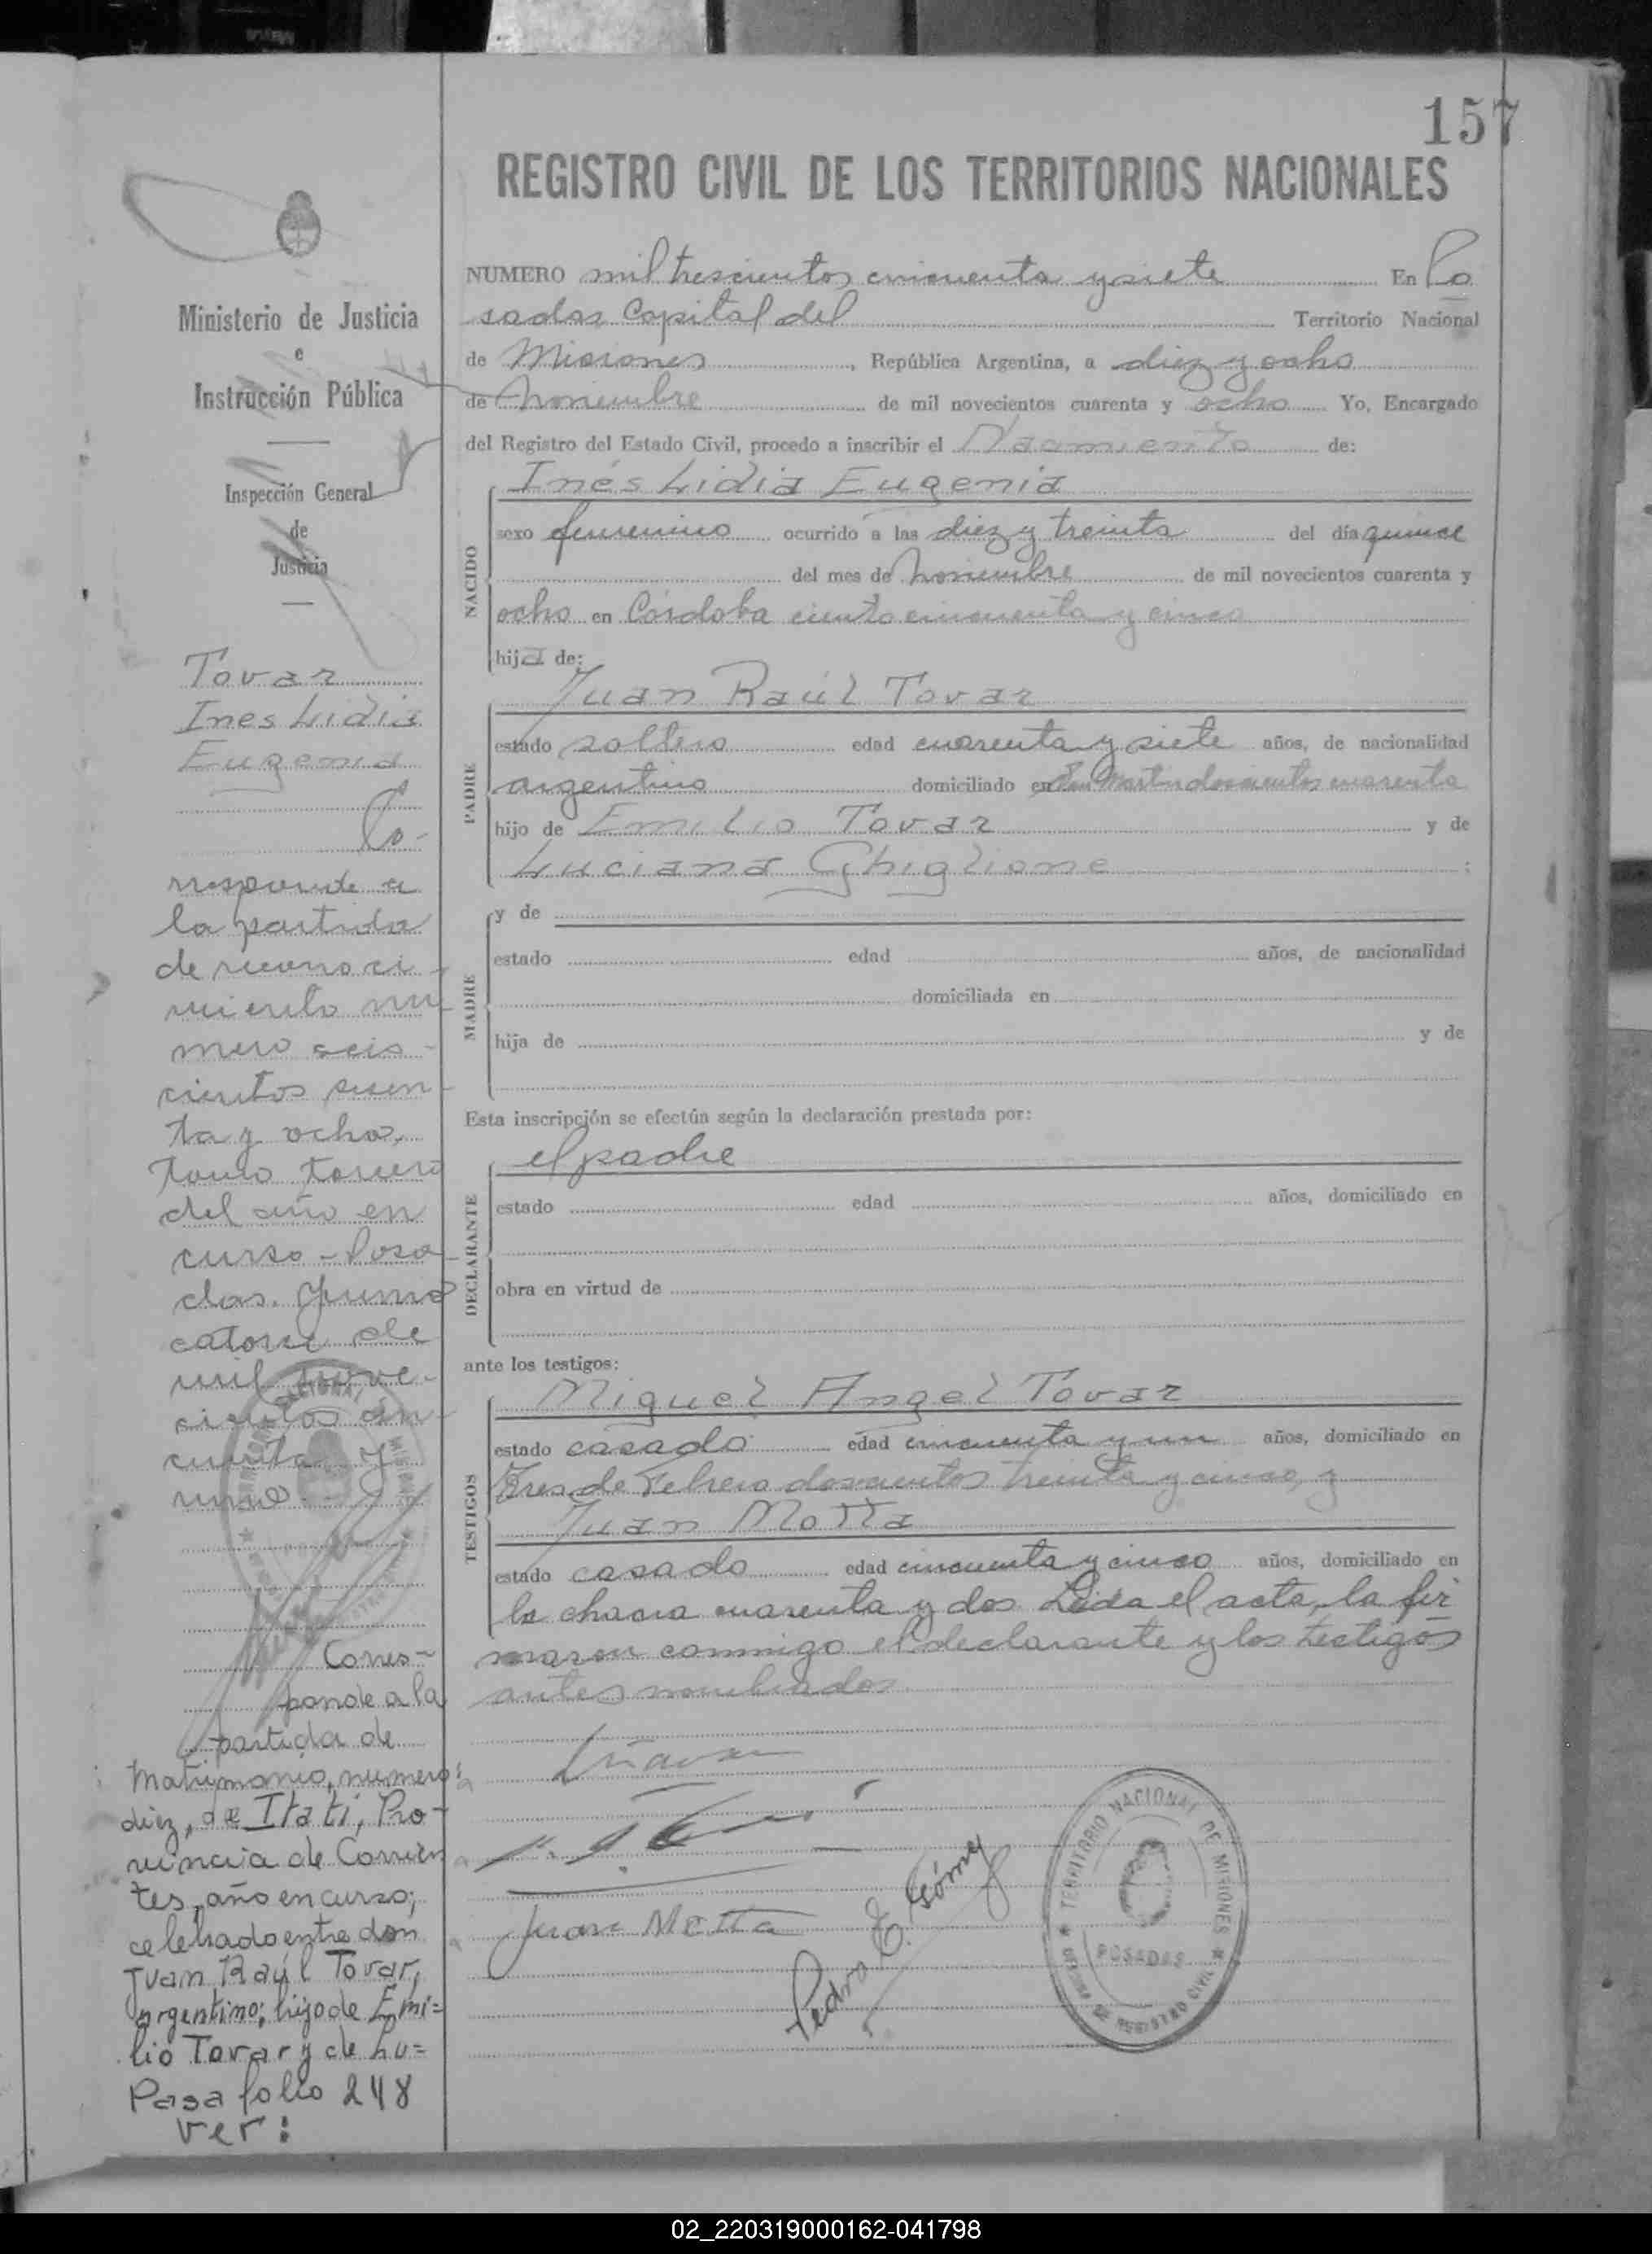 157
REGISTRO CIVIL DE LOS TERRITORIOS NACIONALES
NUMERO mil trescientos cincuenta y siete En Po
sadas Capital del Territorio Nacional
de Misiones, República Argentina, a diez y ocho
de Noviembre de mil novecientos cuarenta y ocho Yo, Encargado
del Registro del Estado Civil, procedo a inscribir el Nacimiento de:
NACIDO
Inés Lidia Eugenia
sexo femenino ocurrido a las diez y treinta del día quince
del mes de Noviembre de mil novecientos cuarenta y
ocho en Córdoba ciento cincuenta y cinco
hija de:
PADRE
Juan Raúl Tovar
estado soltero edad cuarenta y siete años, de nacionalidad
argentino domiciliado en San Martín doscientos cuarenta
hijo de Emilio Tovar y de
Luciana Ghiglione ;
MADRE
y de
estado edad años, de nacionalidad
domiciliada en
hija de y de
Esta inscripción se efectúa según la declaración prestada por:
DECLARANTE
el padre
estado edad años, domiciliado en
obra en virtud de
ante los testigos:
TESTIGOS
Miguel Angel Tovar
estado casado edad cincuenta y un años, domiciliado en
Tres de Febrero doscientos treinta y cinco, y
Juan Motta
estado casado edad cincuenta y cinco años, domiciliado en
la chacra cuarenta y dos Leida el acta, la fir
maron conmigo el declarante y los testigos
antes nombrados
Juan Motta
Pedro E. Gómez
TERRITORIO NACIONAL DE MISIONES
POSADAS
REGISTRO CIVIL
Ministerio de Justicia
e
Instrucción Pública
Inspección General
de
Justicia
Tovar
Ines Lidia
Eugenia
Co-
rresponde a
la partida
de reconoci-
miento nu-
mero seis-
cientos sesen-
ta y ocho,
tomo tercero
del año en
curso - Posa-
das. Junio
catorce de
mil nove-
cientos cin-
cuenta y
uno.-
Corres-
ponde a la
partida de
Matrimonio, numero:
diez, de Itatí, Pro-
vincia de Corrien
tes, año en curso;
celebrado entre don
Juan Raúl Tovar,
argentino; hijo de Emi=
lio Tovar y de Lu=
Pasa folio 248
Ver:
02_220319000162-041798